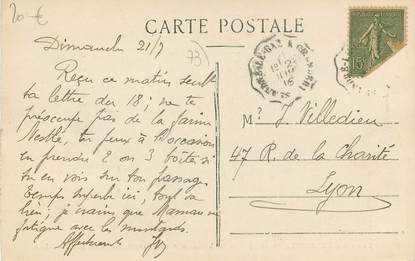 20 €
CARTE POSTALE
Dimanche 21/7
73
Reçu ce matin seult
ta lettre du 18 ; ne te
préoccupe pas de la farine
Nestlé, tu peux à l'occasion
en prendre 2 ou 3 boîtes si
tu en vois sur ton passage
Temps superbe ici, tout va
bien ; je crains que Maman se
fatigue avec les moutards.
Affectueusement
15
M. J. Villedieu
47 R. de la Charité
Lyon